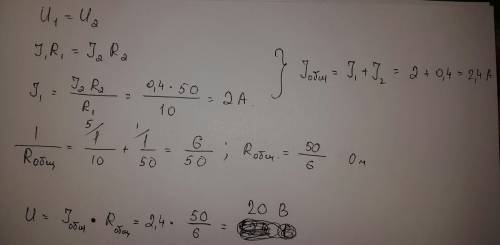 U₁ = U₂
J₁R₁ = J₂ R₂
J₁ = J₂ R₂ / R₁ = 0,4 · 50 / 10 = 2 А. } Jобщ = J₁ + J₂ = 2 + 0,4 = 2,4 А
1 / Rобщ = 1⁵ / 10 + 1¹ / 50 = 6 / 50 ; Rобщ. = 50 / 6 Ом
U = Jобщ · Rобщ = 2,4 · 50 / 6 = 20 В